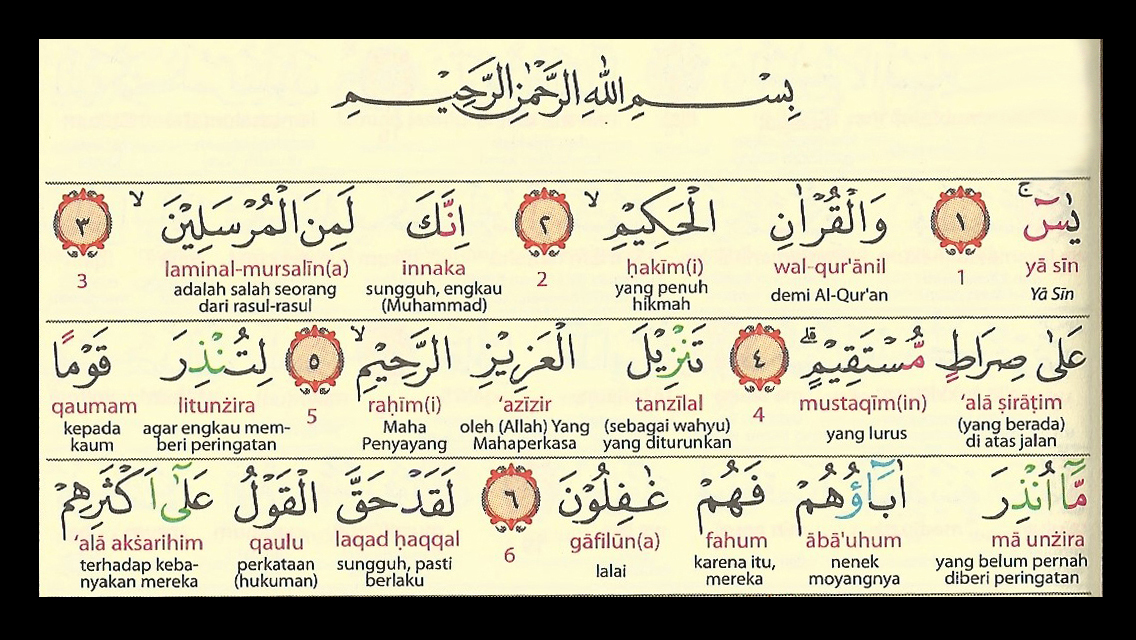 بِسْمِ اللّٰهِ الرَّحْمٰنِ الرَّحِيْمِ
يٰسۤ ۚ ١ وَالْقُرْاٰنِ الْحَكِيْمِ ۙ ٢ اِنَّكَ لَمِنَ الْمُرْسَلِيْنَ ۙ ٣
yā sīn 1 wal-qur'ānil ḥakīm(i) 2 innaka laminal-mursalīn(a) 3
Yā Sīn demi Al-Qur'an yang penuh hikmah sungguh, engkau (Muhammad) adalah salah seorang dari rasul-rasul
عَلٰى صِرَاطٍ مُّسْتَقِيْمٍ ۗ ٤ تَنْزِيْلَ الْعَزِيْزِ الرَّحِيْمِ ۙ ٥ لِتُنْذِرَ قَوْمًا
‘alā ṣirāṭim mustaqīm(in) 4 tanzīlal ‘azīzir raḥīm(i) 5 litunżira qaumam
(yang berada) di atas jalan yang lurus (sebagai wahyu) yang diturunkan oleh (Allah) Yang Mahaperkasa Maha Penyayang agar engkau mem-beri peringatan kepada kaum
مَّآ اُنْذِرَ اٰبَاۤؤُهُمْ فَهُمْ غٰفِلُوْنَ ٦ لَقَدْ حَقَّ الْقَوْلُ عَلٰٓى اَكْثَرِهِمْ
mā unżira ābā'uhum fahum gāfilūn(a) 6 laqad ḥaqqal qaulu ‘alā akśarihim
yang belum pernah diberi peringatan nenek moyangnya karena itu, mereka lalai sungguh, pasti berlaku perkataan (hukuman) terhadap keba-nyakan mereka